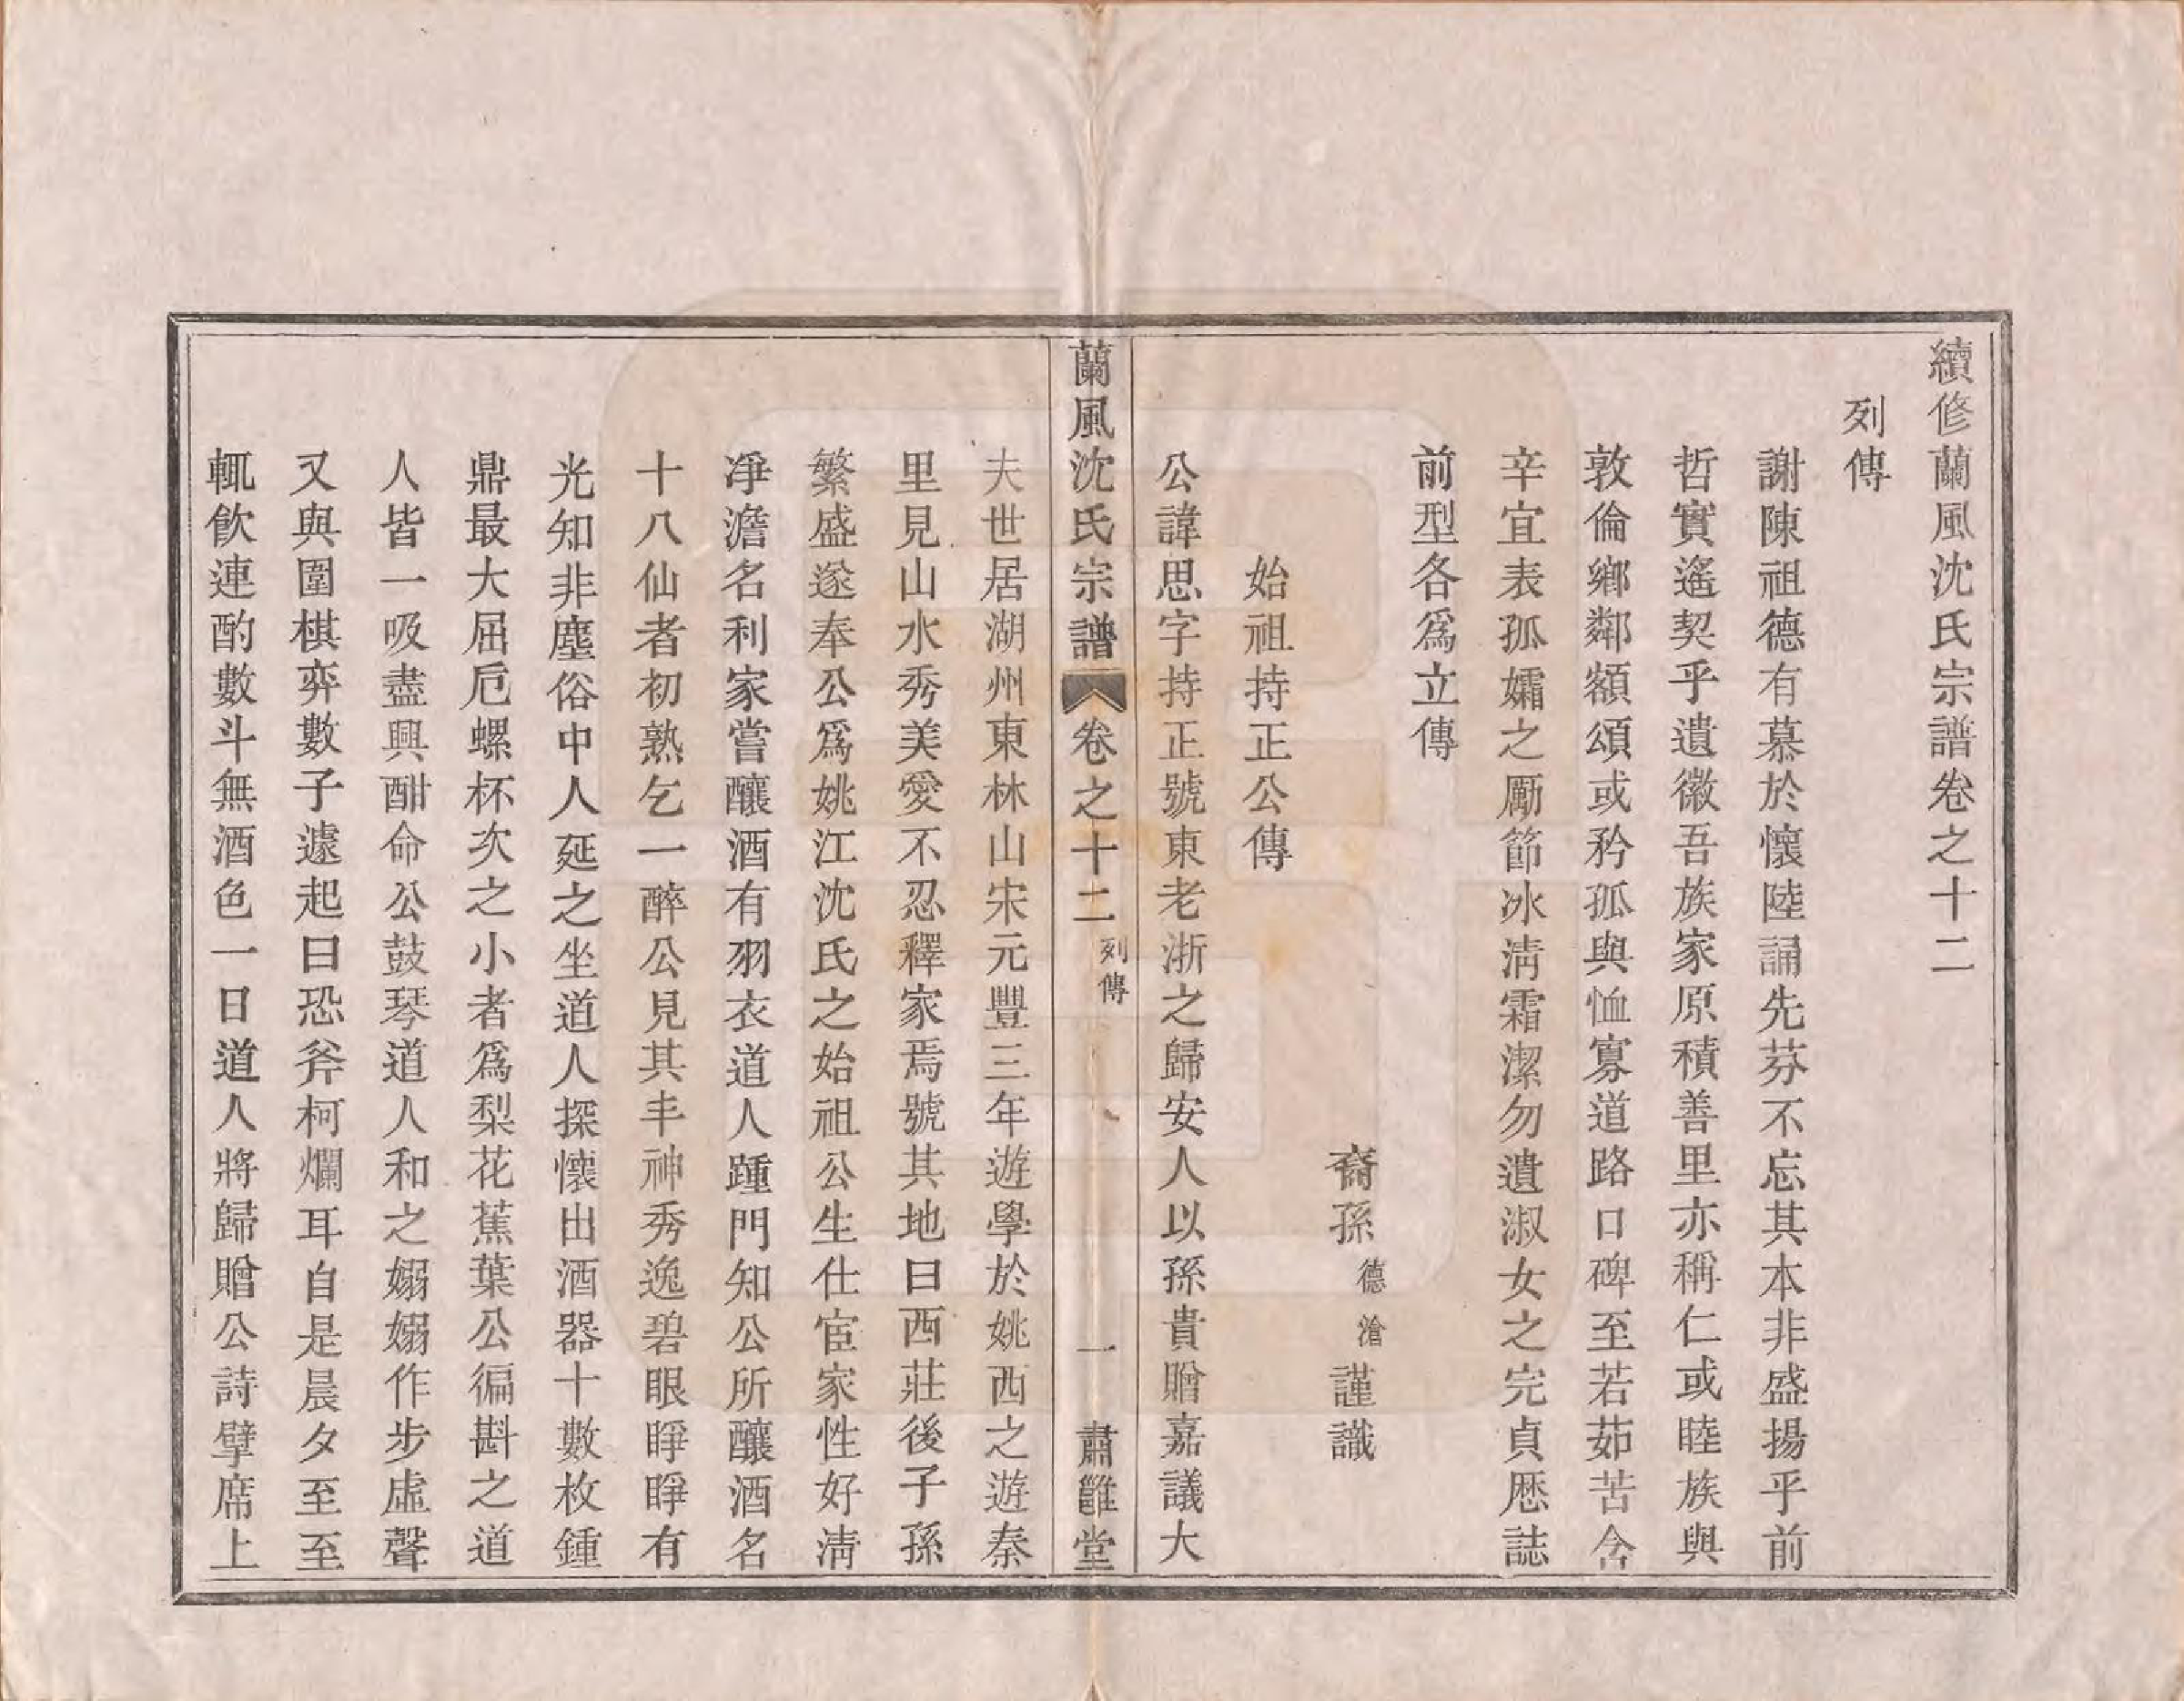 續修蘭風沈氏宗譜卷之十二
列傳
謝陳祖德有慕於懷陸誦先芬不忘其本非盛揚乎前
哲實遙契乎遺徽吾族家原積善里亦稱仁或睦族與
敦倫鄉鄰額頌或矜孤與恤寡道路口碑至若茹苦含
辛宜表孤孀之勵節冰淸霜潔勿遺淑女之完貞歷誌
前型各爲立傳
裔孫德滄謹識
始祖持正公傳
公諱思字持正號東老浙之歸安人以孫貴贈嘉議大
蘭風沈氏宗譜 卷之十二 列傳 一 肅雝堂
夫世居湖州東林山宋元豐三年遊學於姚西之遊秦
里見山水秀美愛不忍釋家焉號其地曰西莊後子孫
繁盛遂奉公爲姚江沈氏之始祖公生仕宦家性好淸
凈澹名利家嘗釀酒有羽衣道人踵門知公所釀酒名
十八仙者初熟乞一醉公見其丰神秀逸碧眼睜睜有
光知非塵俗中人延之坐道人探懷出酒器十數枚鍾
鼎最大屈巵螺杯次之小者爲梨花蕉葉公徧斟之道
人皆一吸盡興酣命公鼓琴道人和之嫋嫋作步虛聲
又與圍棋弈數子遽起曰恐斧柯爛耳自是晨夕至至
輒飮連酌數斗無酒色一日道人將歸贈公詩擘席上